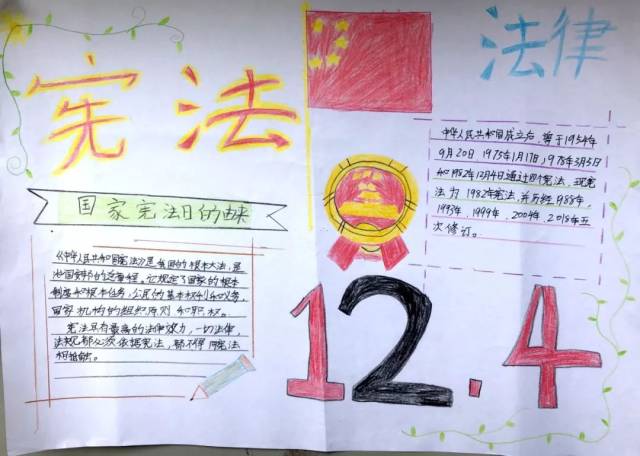 宪法
法律
国家宪法日的由来
《中华人民共和国宪法》是我国的根本大法,是
治国安邦的总章程。它规定了国家的根本
制度和根本任务,公民的基本权利和义务,
国家机构的组织原则和职权。
宪法具有最高的法律效力,一切法律、
法规都必须依据宪法,都不得同宪法
相抵触。
中华人民共和国成立后,曾于1954年
9月20日、1975年1月17日、1978年3月5日
和1982年12月4日通过四个宪法,现宪
法为1982年宪法,并历经1988年、
1993年、1999年、2004年、2018年五
次修订。
12.4